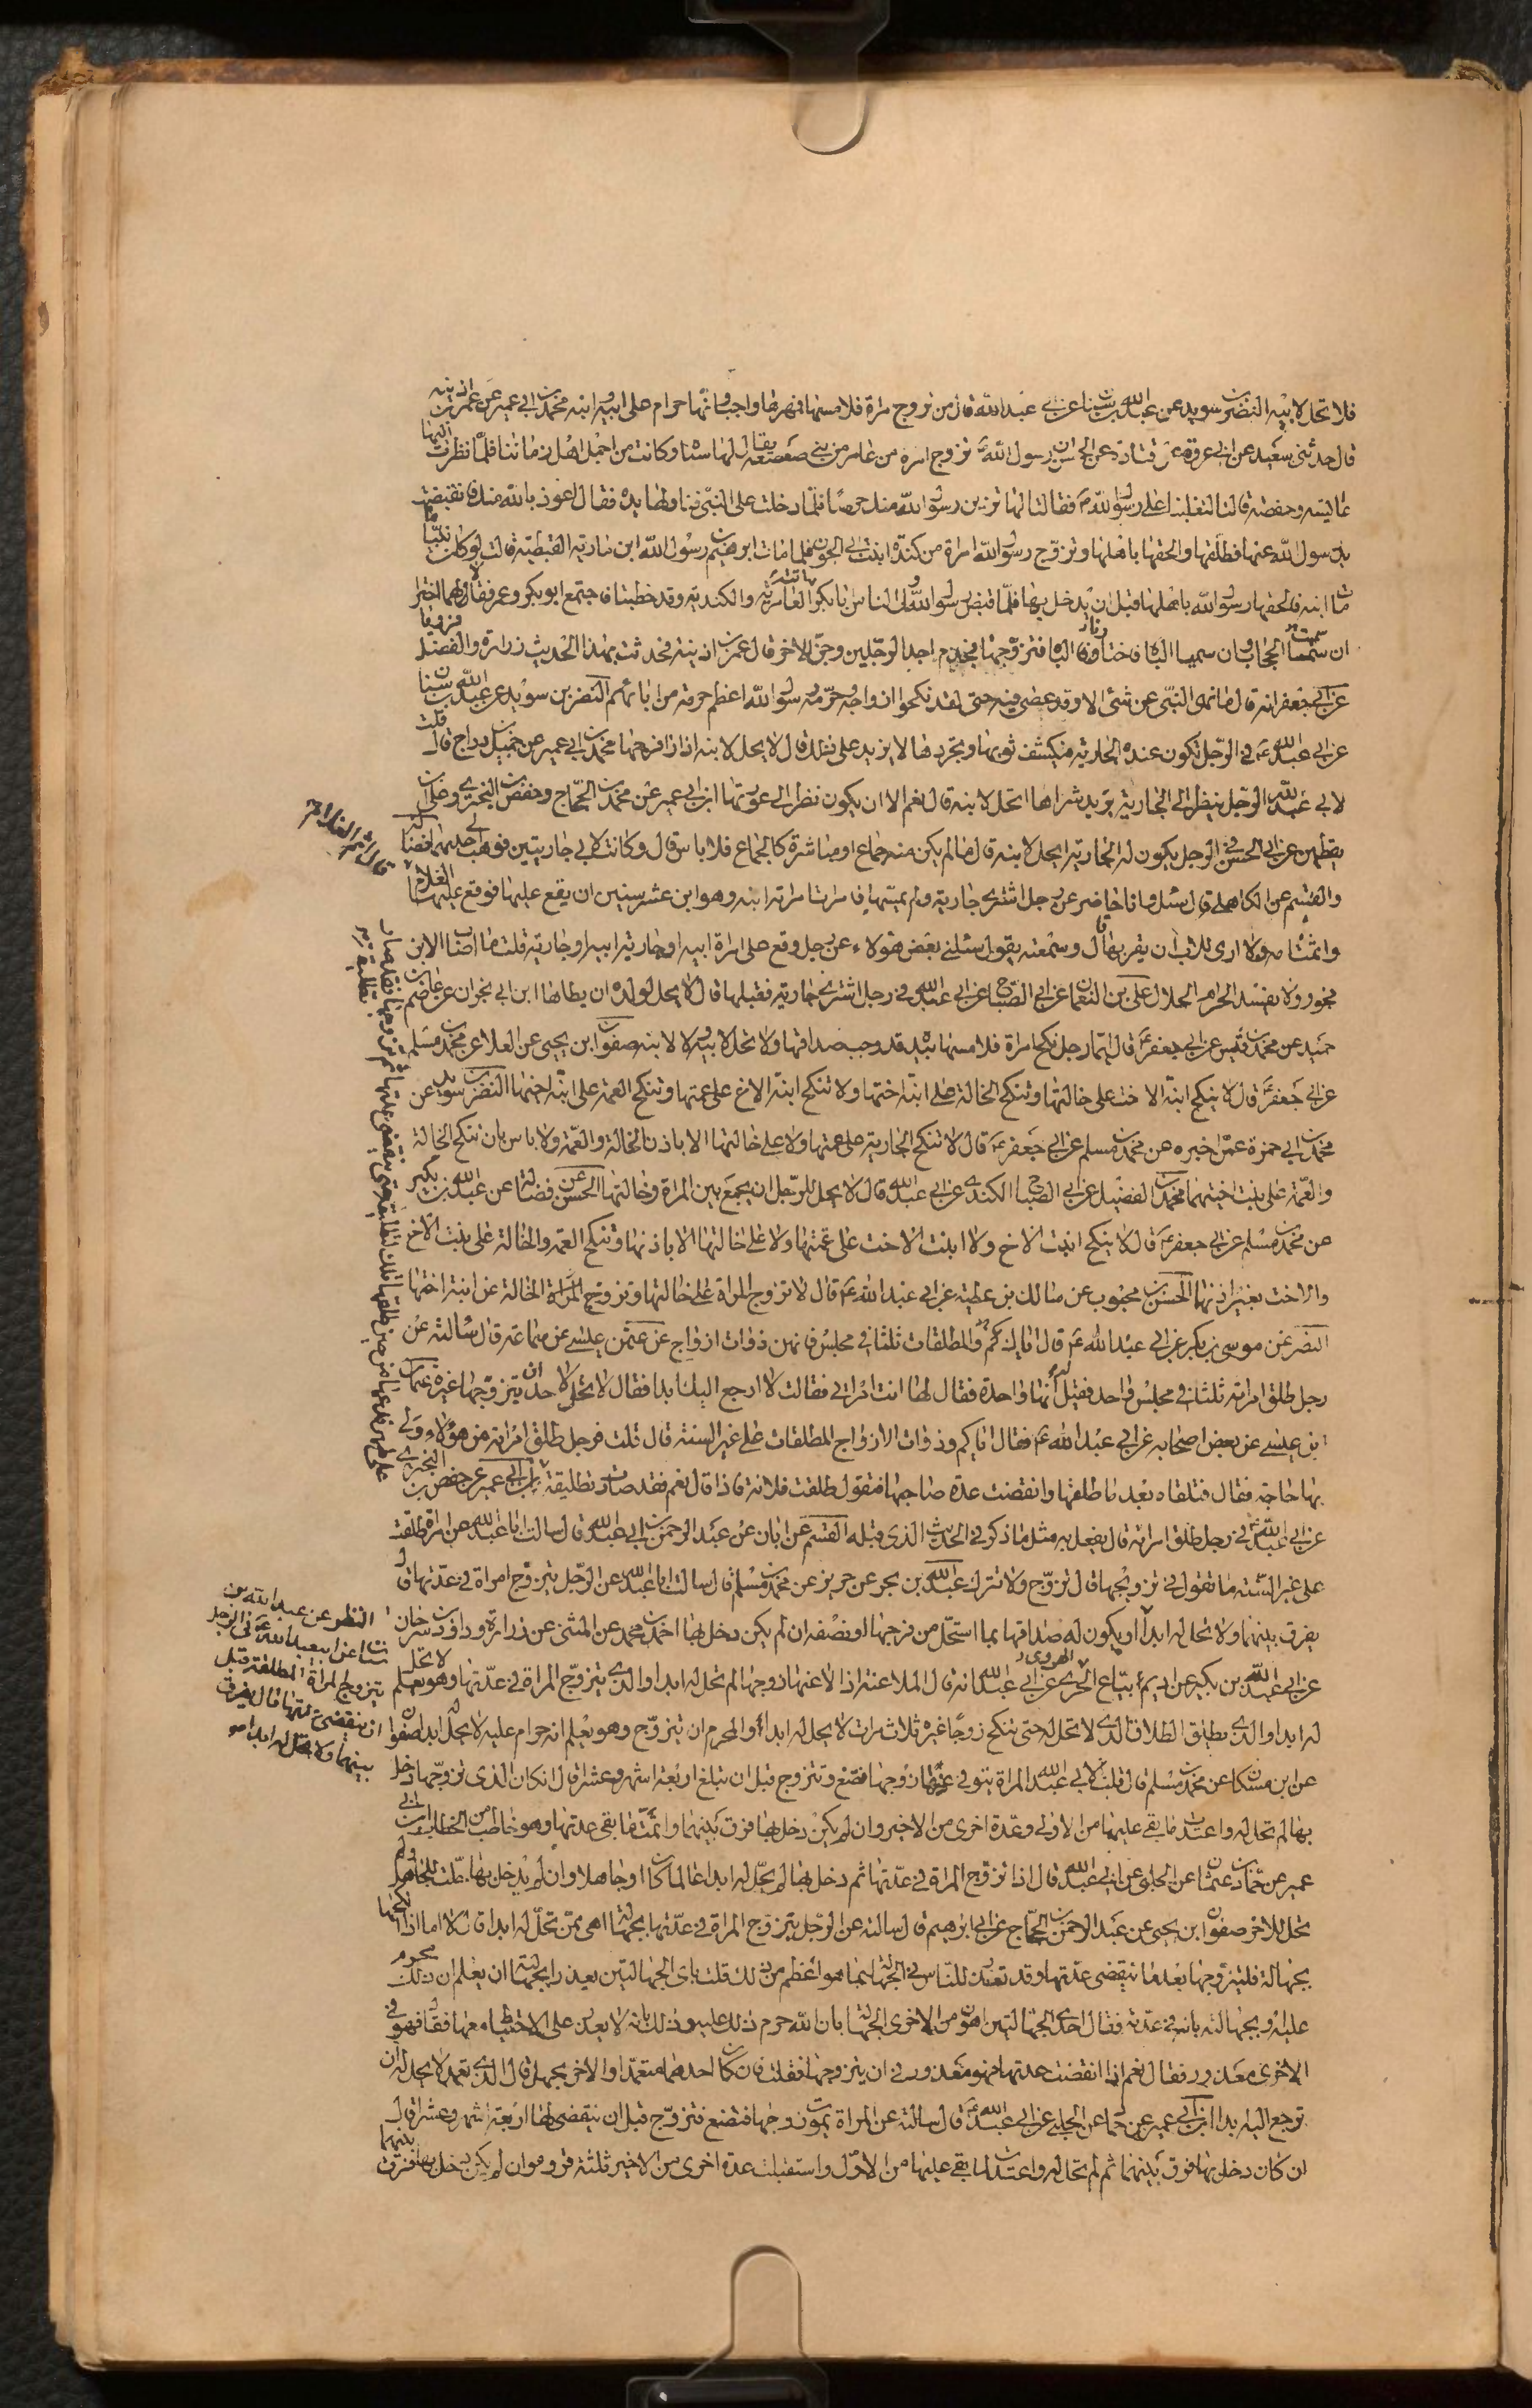 فلا تحل لابيه النضر بن سويد عن عبد الله بن سنان عن ابي عبد الله قال من تزوج مراة فلامسها فمهرها واجب وانها حرام على ابيه وابنه محمد بن ابي عمير عن عمر بن اذينه
قال حدثني سعيد عن ابي عروة عن قتادة عن الحسن ان رسول الله تزوج امرة من عامر من بني صعصعة يقال لها سنا وكانت من اجمل اهل زماننا فلما نظرت اليها
عايشه وحفصة قالتا لتغلبنا على رسول الله فقالتا لها تزين رسول الله منك حرصا فلما دخلت على النبي تناولها بيده فقال اعوذ بالله منك فانقبضت
يد رسول الله عنها فطلقها والحقها باهلها وتزوج رسول الله امراة من كندة ابنت ابي الجون فلما مات ابرهيم بن رسول الله ابن مارية القبطية قالت لو كان نبيا ما
مات ابنه فالحقها رسول الله باهلها قبل ان يدخل بها فلما قبض رسول الله وولى الناس ابا بكر اتته العامرية والكندية وقد خطبتا فاجتمع ابو بكر وعمر فقالا لهما اختارا
ان شئتما الحجاب وان شئتما الباه فاختارتا الباه فتزوجتا فجذم احد الرجلين وجن الاخر قال عمر بن اذينة فحدثت بهذا الحديث زرارة والفضيل فرويا
عن ابي جعفر انه قال ما نهى النبي عن شئ الا وقد عصي فيه حتى لقد نكحوا ازواجه وحرمة رسول الله اعظم حرمة من ابائهم النضر بن سويد عن عبد الله بن سنان
عن ابي عبد الله في الرجل تكون عنده الجارية فيكشف ثوبها ويجردها لا يزيد على ذلك قال لا يحل لابنه اذا راى فرجها محمد بن ابي عمير عن جميل بن دراج قال قلت
لابي عبد الله الرجل ينظر الى الجارية يريد شراها اتحل لابنه قال نعم الا ان يكون نظر الى عورتها ابن ابي عمير عن محمد بن الحجاج وحفص بن البختري وعلي بن
يقطين عن ابي الحسن في الرجل يكون له الجارية ايحل لابنه قال ما لم يكن منه جماع او مباشرة كالجماع فلا باس قال وكانت لابي جاريتين فوهب لي احديهما فضالة
والقسم عن الكاهلي قال سئل وانا حاضر عن رجل اشترى جارية ولم يمسها فامرت امراته ابنه وهو ابن عشر سنين ان يقع عليها فوقع عليها الغلام
قال اثم الغلام
واثمت امه ولا ارى للاب ان يقربها قال وسمعته يقول سئلني بعض هؤلاء عن رجل وقع على امراة ابيه او جارية ابيه او جاريته قلت ما اصاب الابن
فجور ولا يفسد الحرام الحلال علي بن النعمان عن ابي الصباح عن ابي عبد الله في رجل اشترى جارية فقبلها قال لا يحل لولده ان يطاها ابن ابي نجران عن عاصم بن
حميد عن محمد بن قيس عن ابي جعفر قال ايما رجل نكح امراة فلامسها بيده قد وجب صداقها ولا تحل لابيه ولا لابنه صفوان ابن يحيى عن العلا عن محمد بن مسلم
عن ابي جعفر قال لا ينكح ابنة الاخت على خالتها وتنكح الخالة على ابنة اختها ولا تنكح ابنة الاخ على عمتها وتنكح العمة على ابنة اخيها النضر بن سويد عن
محمد بن ابي حمزة عمن اخبره عن محمد بن مسلم عن ابي جعفر قال لا تنكح الجارية على عمتها ولا على خالتها الا باذن الخالة والعمة ولا باس بان تنكح الخالة
والعمة على بنت اختهما محمد بن الفضيل عن ابي الصباح الكندي عن ابي عبد الله قال لا يحل للرجل ان يجمع بين المراة وخالتها الحسن عن فضالة عن عبد الله بن بكير
عن محمد بن مسلم عن ابي جعفر قال لا ينكح ابنت الاخ ولا ابنت الاخت على عمتها ولا على خالتها الا باذنها وتنكح العمة والخالة على بنت الاخ
والاخت بغير اذنها الحسن بن محبوب عن مالك بن عطية عن ابي عبد الله قال لا تزوج المراة على خالتها وتزوج المراة الخالة على ابنة اختها
النضر عن موسى بن بكر عن ابي عبد الله قال اياكم والمطلقات ثلثا في مجلس فانهن ذوات ازواج عن عثمن بن عيسى عن سماعة قال سالته عن
رجل طلق امراته ثلثا في مجلس واحد فقيل له انها واحدة فقال لها انت امراتي فقالت لا ارجع اليك ابدا فقال لا يحل لاحد ان يتزوجها غيره عثمان
ابن عيسى عن بعض اصحابه عن ابي عبد الله فقال اياكم وذوات الازواج المطلقات على غير السنة قال قلت فرجل طلق امراته من هؤلاء ولي
بها حاجة فقال فتلقاه بعد ما طلقها وانقضت عدة صاحبها فتقول طلقت فلانة فاذا قال نعم فقد صارت تطليقة ابن ابي عمير عن حفص بن البختري
عن ابي عبد الله في رجل طلق امراته قال يفعل به مثل ما ذكر في الحديث الذي قبله القسم عن ابان عن عبد الرحمن بن ابي عبد الله قال سالت ابا عبد الله عن امراة طلقت
على غير السنة ما تقول في تزويجها قال تزوج ولا تترك عبد الله بن بحر عن حريز عن محمد بن مسلم قال سالت ابا عبد الله عن الرجل يتزوج امراة في عدتها قال
يفرق بينهما ولا تحل له ابدا او يكون له صداقها بما استحل من فرجها او نصفه ان لم يكن دخل بها احمد بن محمد عن المثنى عن زرارة وداود بن سرحان
عن ابي عبد الله بن بكير عن اديم بياع الهروي عن ابي عبد الله انه قال الملاعنة اذا لاعنها زوجها لم تحل له ابدا والذي يتزوج المراة في عدتها وهو يعلم لا تحل
له ابدا والذي يطلق الطلاق الذي لا تحل له حتى تنكح زوجا غيره ثلاث مرات لا يحل له ابدا والمحرم ان يتزوج وهو يعلم انه حرام عليه لا يحل له ابدا صفوان
عن ابن مسكان عن محمد بن مسلم قال قلت لابي عبد الله المراة يتوفى عنها زوجها فتضع وتتزوج قبل ان تبلغ اربعة اشهر وعشرا قال ان كان الذي تزوجها دخل
بها لم تحل له واعتدت ما بقي عليها من الاولى وعدة اخرى من الاخير وان لم يكن دخل بها فرق بينهما واتمت ما بقي عدتها وهو خاطب من الخطاب ابن ابي
عمير عن حماد بن عثمان عن الحلبي عن ابي عبد الله قال اذا تزوج المراة في عدتها ثم دخل بها لم يحل له ابدا عالما كان او جاهلا وان لم يدخل بها حلت للجاهل ولم
تحل للاخر صفوان ابن يحيى عن عبد الرحمن بن الحجاج عن ابي ابرهيم قال سالته عن الرجل يتزوج المراة في عدتها بجهالة اهي ممن تحل له ابدا قال لا اما اذا نكحها
بجهالة فليتزوجها بعد ما ينقضي عدتها وقد تعذر للناس في الجهالة بما هو اعظم من ذلك قلت باي الجهالتين يعذر ابجهالته ان يعلم ان ذلك محرم
عليه او بجهالته بانه في عدته فقال احدى الجهالتين اهون من الاخرى الجهالة بان الله حرم ذلك عليه وذلك بانه لا يقدر على الاحتياط معها فقال فهو في
الاخرى معذور فقال نعم اذا انقضت عدتها فهو معذور في ان يتزوجها فقلت فان كان احدهما متعمدا والاخر بجهل قال الذي تعمد لا يحل له ان
ترجع اليه ابدا ابن ابي عمير عن حماد عن الحلبي عن ابي عبد الله قال سالته عن المراة يموت زوجها فتضع فتزوج قبل ان ينقضي لها اربعة اشهر وعشرا قال
ان كان دخل بها فرق بينهما ثم لم تحل له واعتدت لما بقي عليها من الاول واستقبلت عدة اخرى من الاخير ثلثة قروء وان لم يكن دخل بها فرق بينهما
النظر عن عبد الله بن
سنان عن ابي عبد الله في الرجل
يتزوج المراة المطلقة قبل
ان ينقضي عدتها قال يفرق
بينهما ولا تحل له ابدا